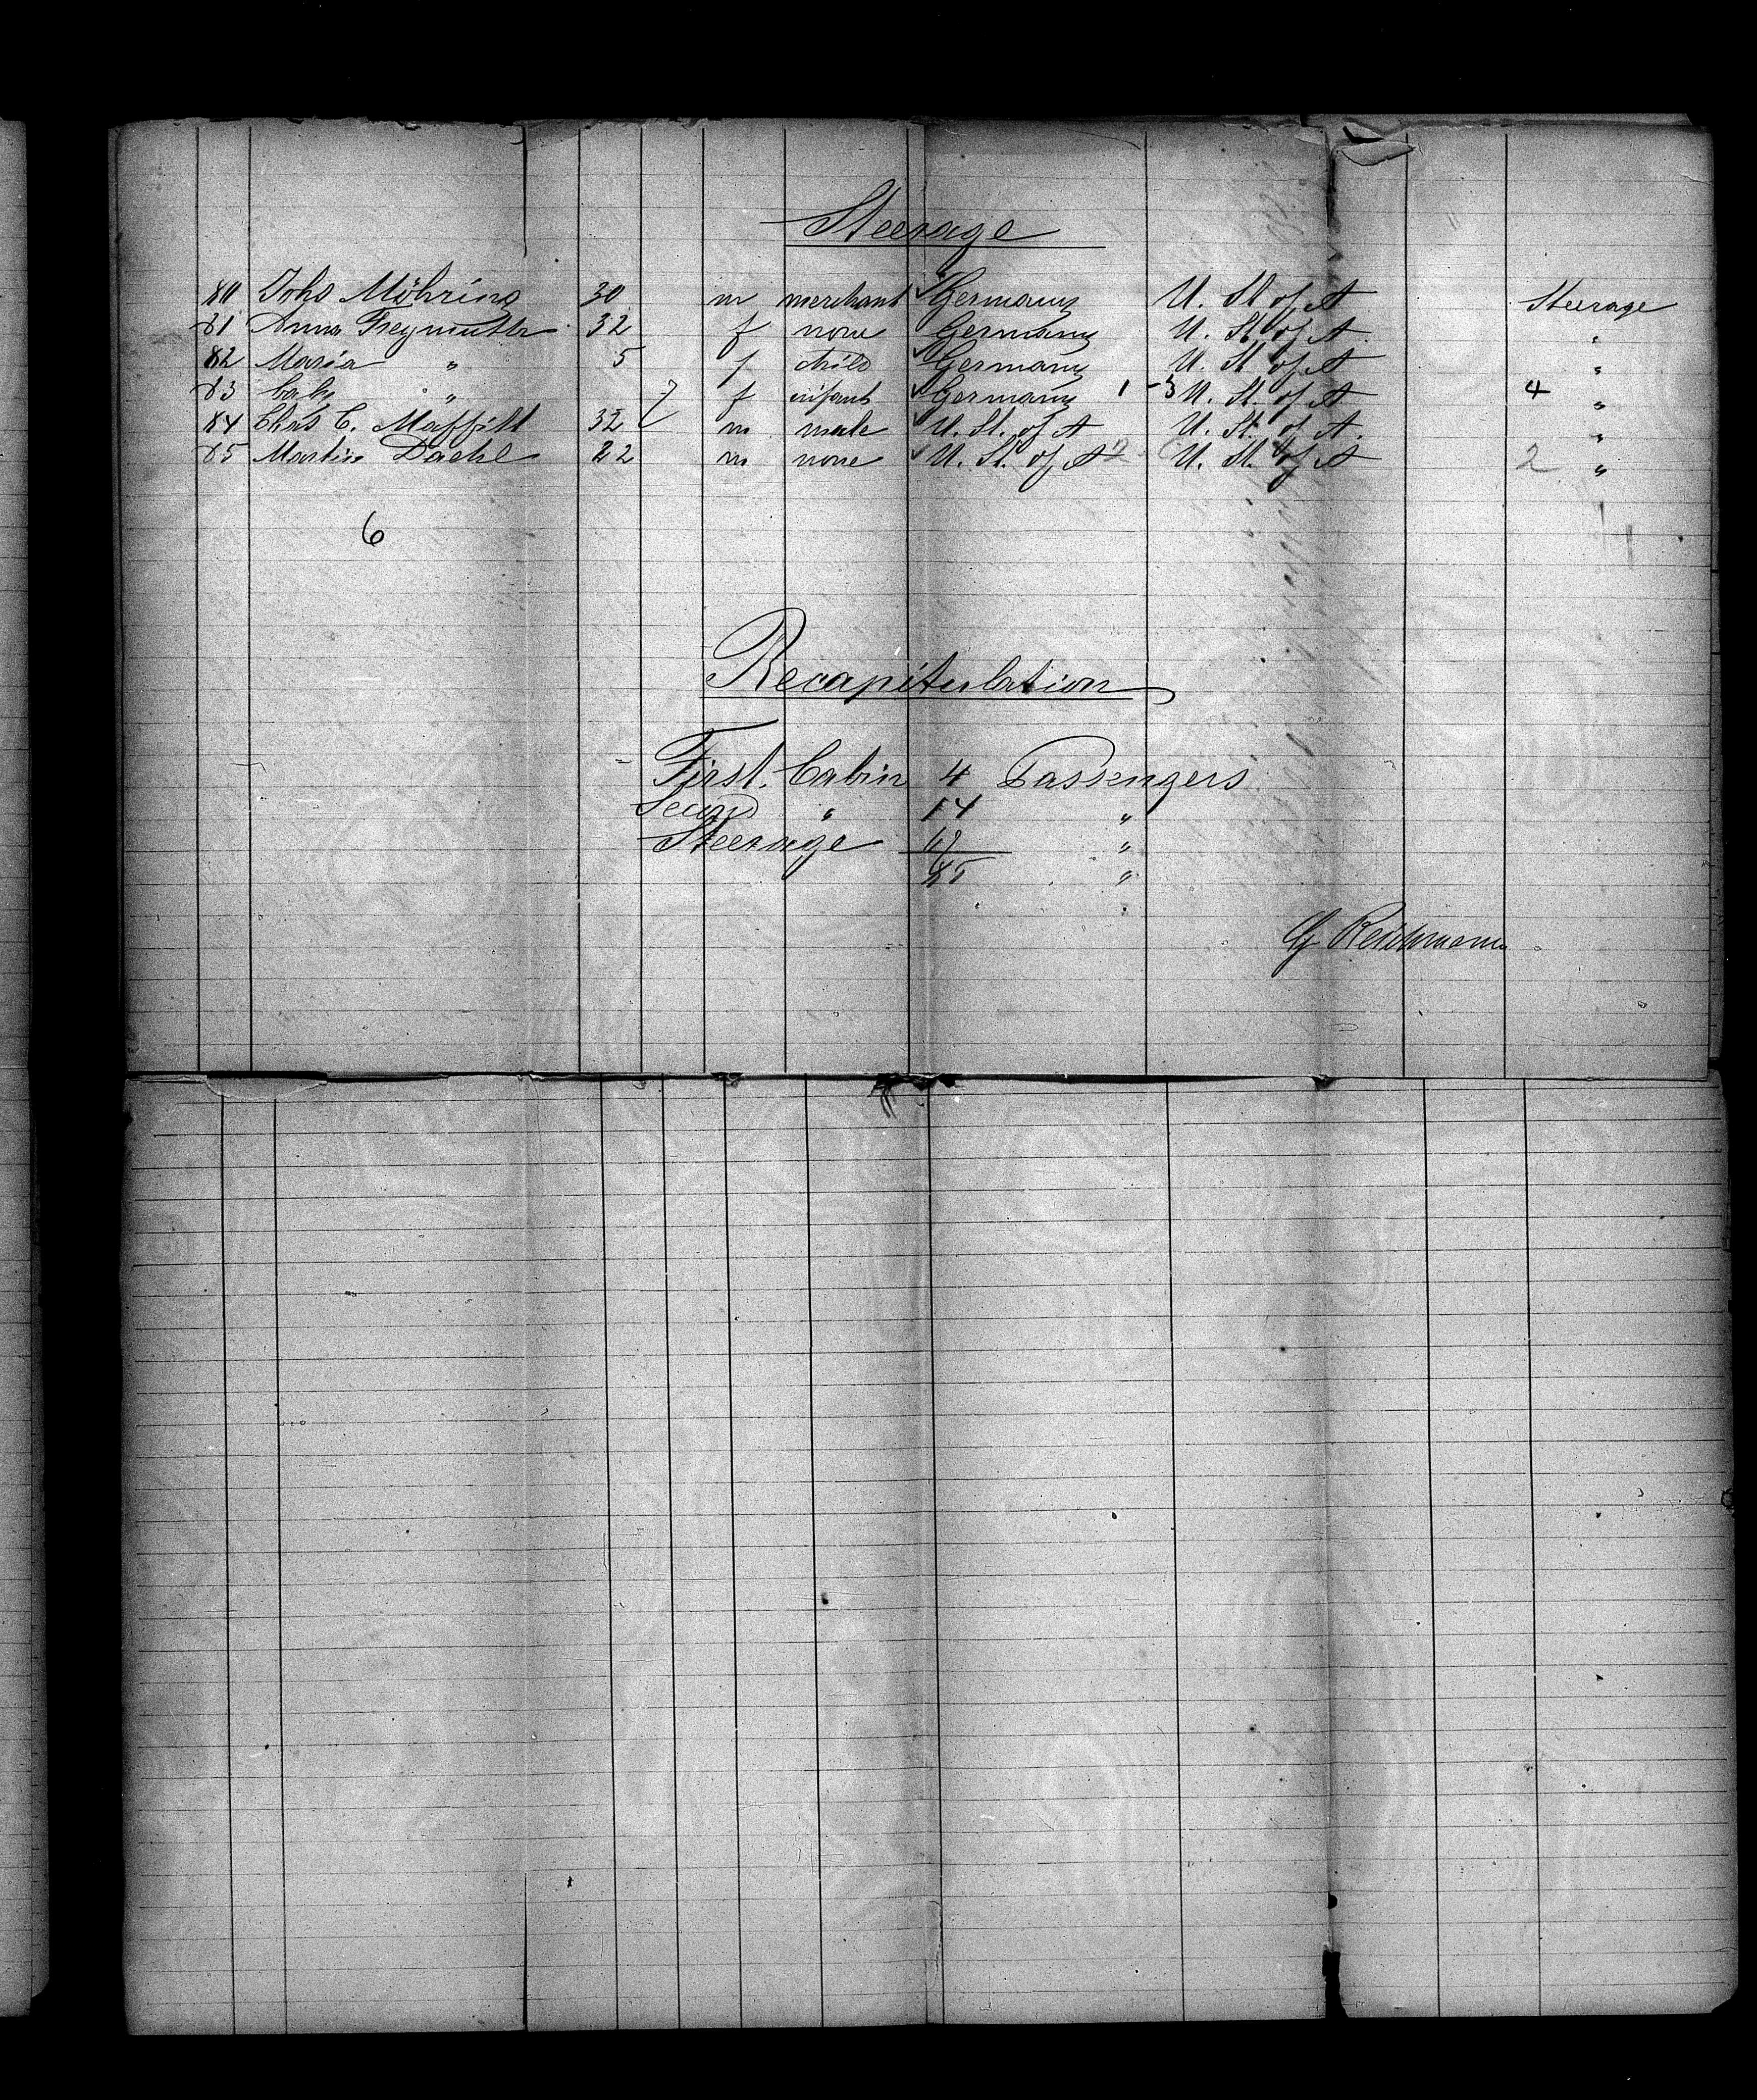 Steerage
80 Johs Möhring 30 m merchant ✓ Germany U. St. of A Steerage
81 Anna Freymuth 32 f none Germany U. St. of A. "
82 Maria " 5 f child ✓ Germany U. St. of A "
83 baby " 7 f infant ✓ Germany 1 - 3 U. St. of A 4 "
84 Chas C. Maffitt 32 m ✓ U. St. of A U. St. of A. "
85 Martin Daehl 22 m none ✓ U. St. of A 2 U. St. of A 2 "
6
Recapitulation
First. Cabin 4 Passengers
Second " 14 "
Steerage 67 "
85 "